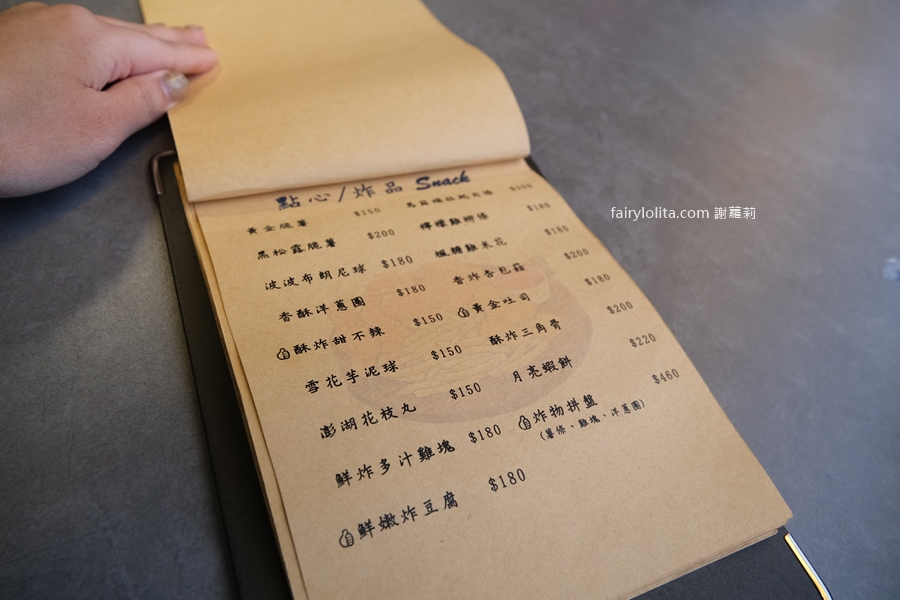 點心/炸品 Snack
黃金脆薯 $160
黑松露脆薯 $200
波波布朗尼球 $180
香酥洋蔥圈 $180
酥炸甜不辣 $150
雪花芋泥球 $150
澎湖花枝丸 $150
鮮炸多汁雞塊 $180
鮮嫩炸豆腐 $180
檸檬雞柳條 $180
楓糖雞米花 $180
香炸杏包菇 $200
黃金吐司 $180
酥炸三角骨 $200
月亮蝦餅 $220
炸物拼盤 $460
(薯條、雞塊、洋蔥圈)
fairylolita.com 謝蘿莉